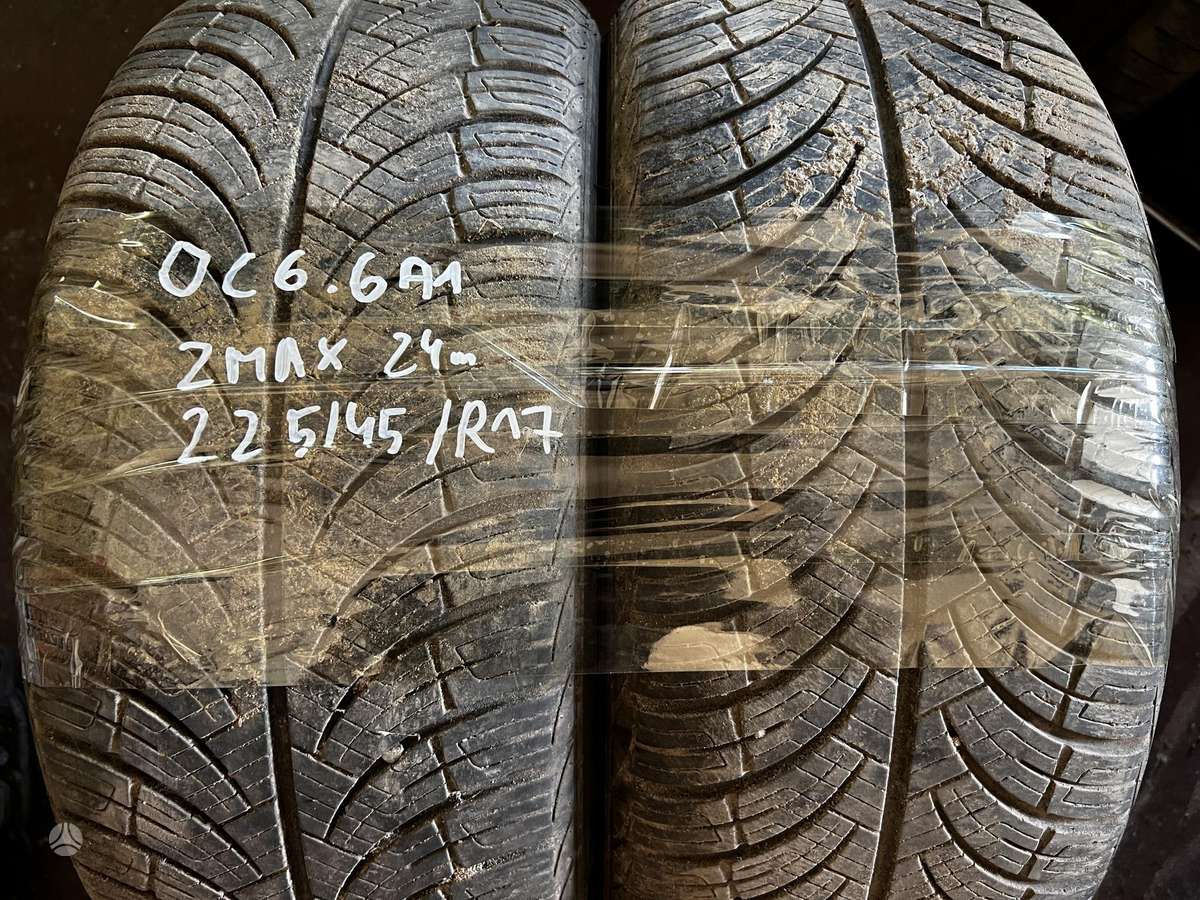 OC6.6A1
ZMAX 24m
225/45/R17